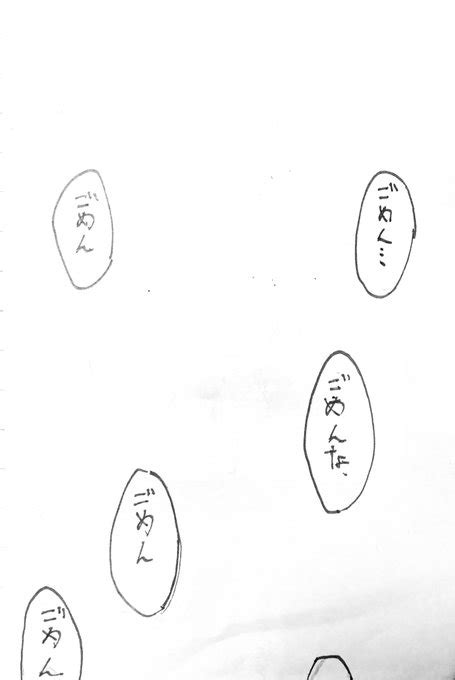 ごめん…
ごめんな、
ごめん
ごめん
ごめん